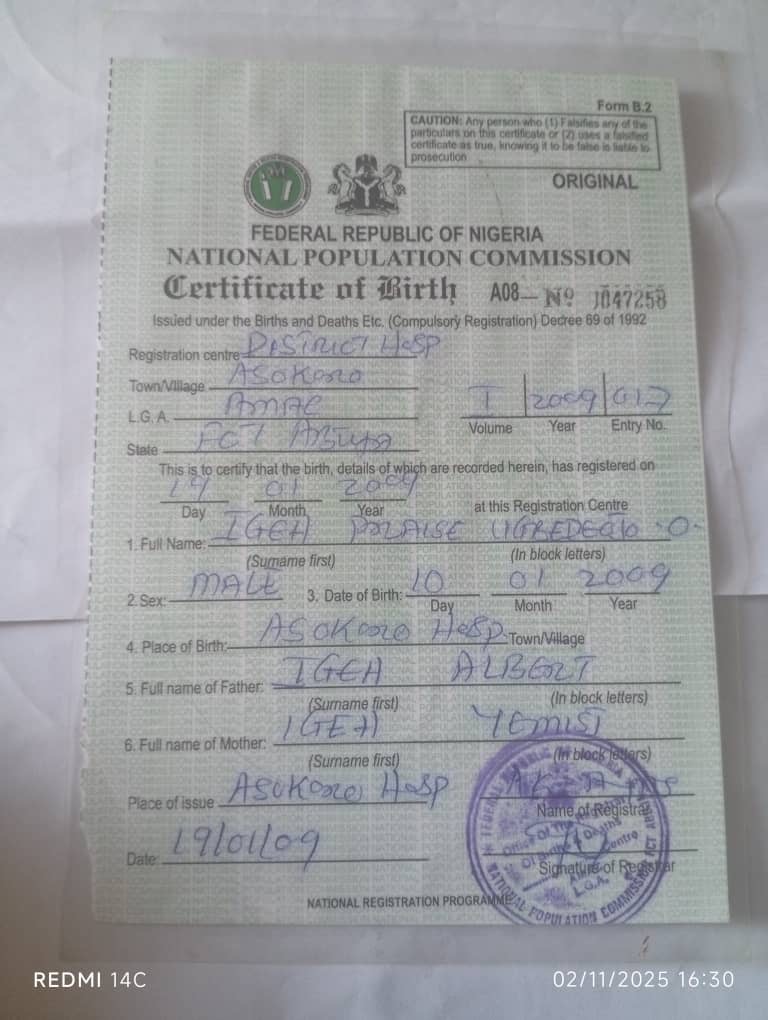 Form B.2
CAUTION: Any person who (1) Falsifies any of the
particulars on this certificate or (2) uses a falsified
certificate as true, knowing it to be false is liable to
prosecution
ORIGINAL
FEDERAL REPUBLIC OF NIGERIA
NATIONAL POPULATION COMMISSION
Certificate of Birth A08— No 1047258
Issued under the Births and Deaths Etc. (Compulsory Registration) Decree 69 of 1992
Registration centre DISTRICT HOSP
Town/Village ASOKORO
L.G.A. AMAC
I 2009
Volume Year Entry No.
State FCT ABUJA
This is to certify that the birth, details of which are recorded herein, has registered on
19 01 2009
Day Month Year at this Registration Centre
1. Full Name: IGEH PRAISE O.
(Surname first) (In block letters)
2. Sex: MALE 3. Date of Birth: 10 01 2009
Day Month Year
4. Place of Birth: ASOKORO HOSP Town/Village
5. Full name of Father: IGEH ALBERT
(Surname first) (In block letters)
6. Full name of Mother: IGEH YEMISI
(Surname first) (In block letters)
Place of issue ASOKORO HOSP
Name of Registrar
Date: 19/01/09
Signature of Registrar
NATIONAL REGISTRATION PROGRAMME
FEDERAL REPUBLIC
NATIONAL POPULATION COMMISSION
L.G.A.
REDMI 14C
02/11/2025 16:30